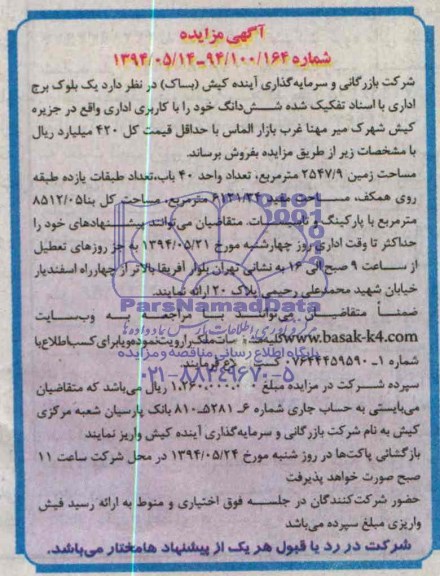 آگهی مزایده
شماره ۹۴/۱۰۰/۱۶۴-۱۳۹۴/۰۵/۱۴
شرکت بازرگانی و سرمایه‌گذاری آینده کیش (بساک) در نظر دارد یک بلوک برج
اداری با اسناد تفکیک شده شش‌دانگ خود را با کاربری اداری واقع در جزیره
کیش شهرک میر مهنا غرب بازار الماس با حداقل قیمت کل ۴۲۰ میلیارد ریال
با مشخصات زیر از طریق مزایده بفروش برساند.
مساحت زمین ۲۵۴۷/۹ مترمربع، تعداد واحد ۴۰ باب،تعداد طبقات یازده طبقه
روی همکف، مساحت مفید ۶۱۳۱/۳۴ مترمربع، مساحت کل بنا۸۵۱۲/۰۵
مترمربع با پارکینگ و تاسیسات. متقاضیان می‌توانند پیشنهادهای خود را
حداکثر تا وقت اداری روز چهارشنبه مورخ ۱۳۹۴/۰۵/۲۱ به جز روزهای تعطیل
از ساعت ۹ صبح الی ۱۶ به نشانی تهران بلوار آفریقا بالاتر از چهارراه اسفندیار
خیابان شهید محمدعلی رحیمی پلاک ۲۰ ارائه نمایند.
ParsNamadData
ضمناً متقاضیان می‌توانند با مراجعه به وب‌سایت
www.basak-k4.com ملک را رویت نموده و یا برای کسب اطلاع با
پایگاه اطلاع رسانی مناقصه و مزایده
شماره ۱-۰۷۶۴۴۴۵۹۵۹۰
۰۲۱-۸۸۳۴۹۶۷۰-۵
سپرده شرکت در مزایده مبلغ ریال می‌باشد که متقاضیان
می‌بایستی به حساب جاری شماره ۶-۵۲۸۱-۸۱۰ بانک پارسیان شعبه مرکزی
کیش به نام شرکت بازرگانی و سرمایه‌گذاری آینده کیش واریز نمایند
بازگشائی پاکت‌ها در روز شنبه مورخ ۱۳۹۴/۰۵/۲۴ در محل شرکت ساعت ۱۱
صبح صورت خواهد پذیرفت
حضور شرکت‌کنندگان در جلسه فوق اختیاری و منوط به ارائه رسید فیش
واریزی مبلغ سپرده می‌باشد
شرکت در رد یا قبول هر یک از پیشنهاد هامختار می‌باشد.